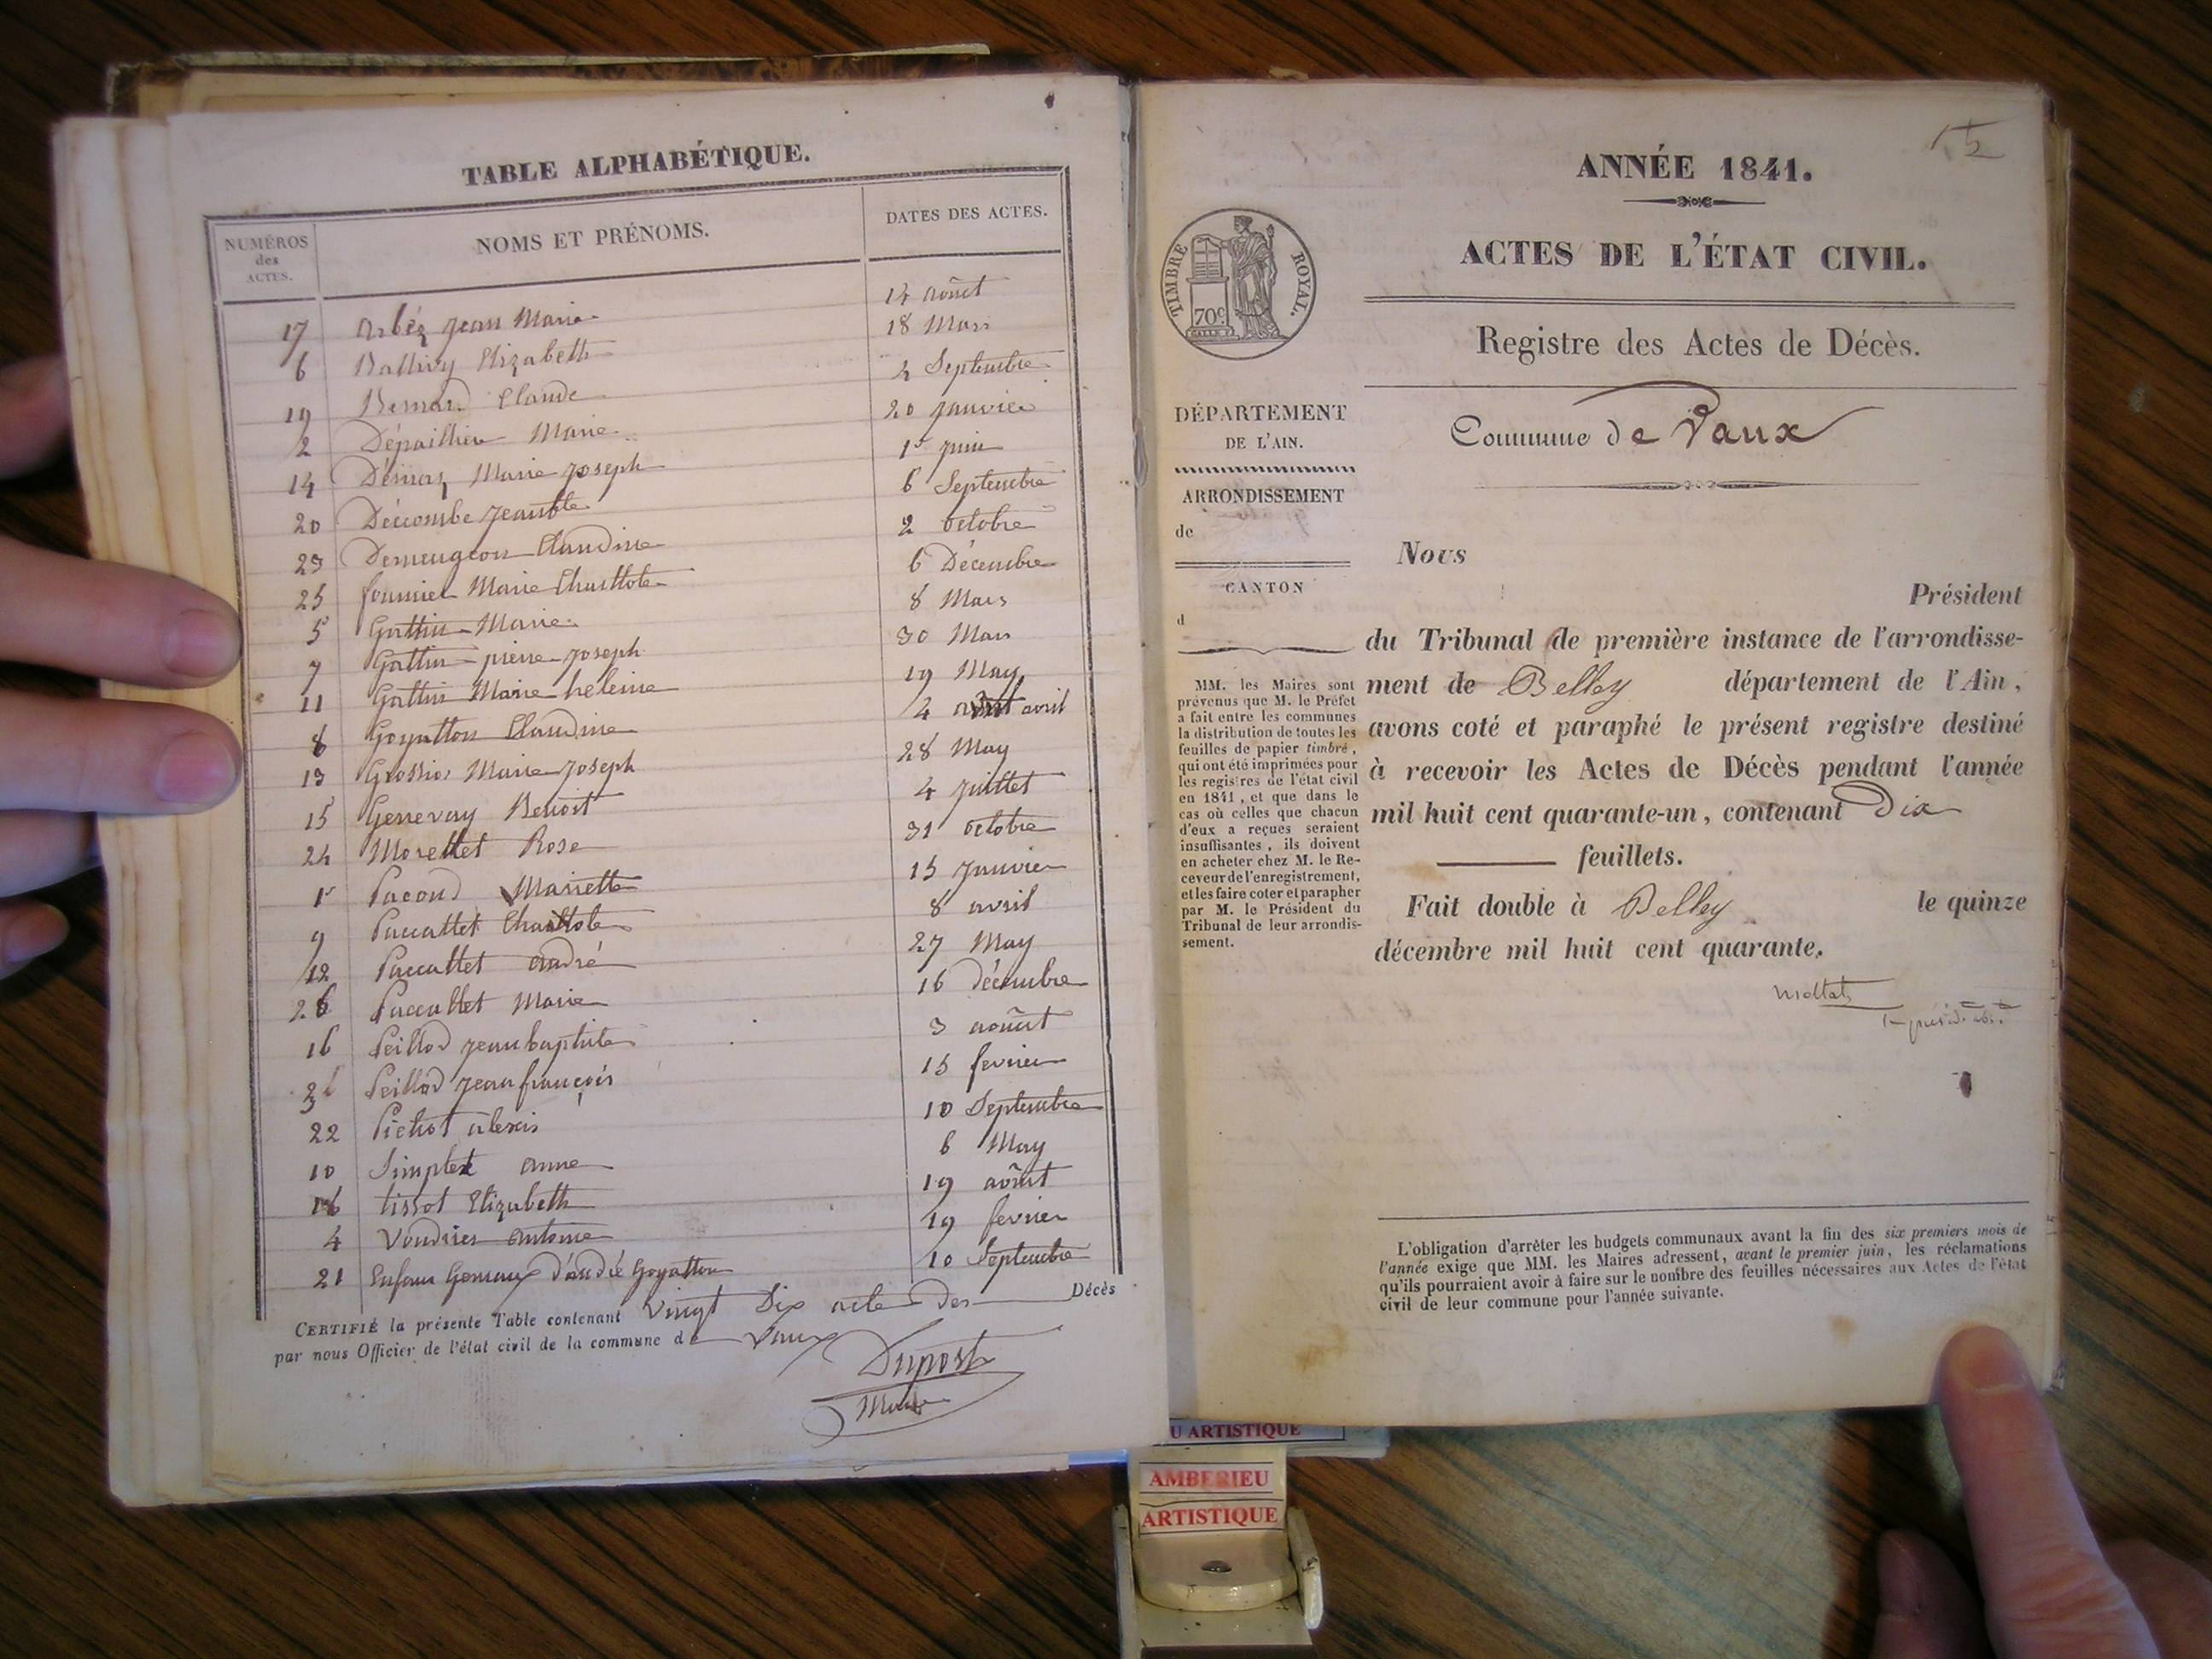 TABLE ALPHABÉTIQUE.
NUMÉROS des ACTES. NOMS ET PRÉNOMS. DATES DES ACTES.
17 Arbéz Jean Marie 14 août
6 Ballivy Elizabeth 18 Mars
19 Bernard Claude 2 Septembre
2 Dépaillier Marie 20 janvier
14 Marie Joseph 1r juin
20 Décombe Jeanste 6 Septembre
23 Demeugeon Claudine 2 octobre
25 fournier Marie Charllote 6 Décembre
5 Gattin Marie 8 Mars
7 Gattin pierre Joseph 30 Mars
11 Gattin Marie heleine 19 May
8 Goyatton Claudine 4 avril
13 Marie Joseph 28 May
15 Genevay Benoit 4 juillet
24 Morellet Rose 31 octobre
1r Pacoud Mariette 15 Janvier
9 Paccallet Charllote 8 avril
12 Paccallet andré 27 May
26 Paccallet Marie 16 décembre
16 Peillod Jean baptiste 3 août
3 Peillod Jean françois 15 fevrier
22 Pichot alexis 10 Septembre
10 Simplex anne 6 May
tissot Elizabeth 19 août
4 antoine 19 fevrier
21 Enfans Gemaux d'andré Goyatton 10 Septembre
CERTIFIÉ la présente Table contenant Vingt Dix acte des Décès
par nous Officier de l'état civil de la commune de Vaux
Dupost
15
ANNÉE 1841.
ACTES DE L'ÉTAT CIVIL.
TIMBRE ROYAL.
70c
Registre des Actes de Décès.
Commune de Vaux
DÉPARTEMENT
DE L'AIN.
ARRONDISSEMENT
de
CANTON
d
MM. les Maires sont
prévenus que M. le Préfet
a fait entre les communes
la distribution de toutes les
feuilles de papier timbré,
qui ont été imprimées pour
les registres de l'état civil
en 1841, et que dans le
cas où celles que chacun
d'eux a reçues seraient
insuffisantes, ils doivent
en acheter chez M. le Re-
ceveur de l'enregistrement,
et les faire coter et parapher
par M. le Président du
Tribunal de leur arrondis-
sement.
Nous
Président
du Tribunal de première instance de l'arrondisse-
ment de Belley département de l'Ain,
avons coté et paraphé le présent registre destiné
à recevoir les Actes de Décès pendant l'année
mil huit cent quarante-un, contenant Dix
feuillets.
Fait double à Belley le quinze
décembre mil huit cent quarante.
L'obligation d'arrêter les budgets communaux avant la fin des six premiers mois de
l'année exige que MM. les Maires adressent, avant le premier juin, les réclamations
qu'ils pourraient avoir à faire sur le nombre des feuilles nécessaires aux Actes de l'état
civil de leur commune pour l'année suivante.
U ARTISTIQUE
AMBERIEU
ARTISTIQUE